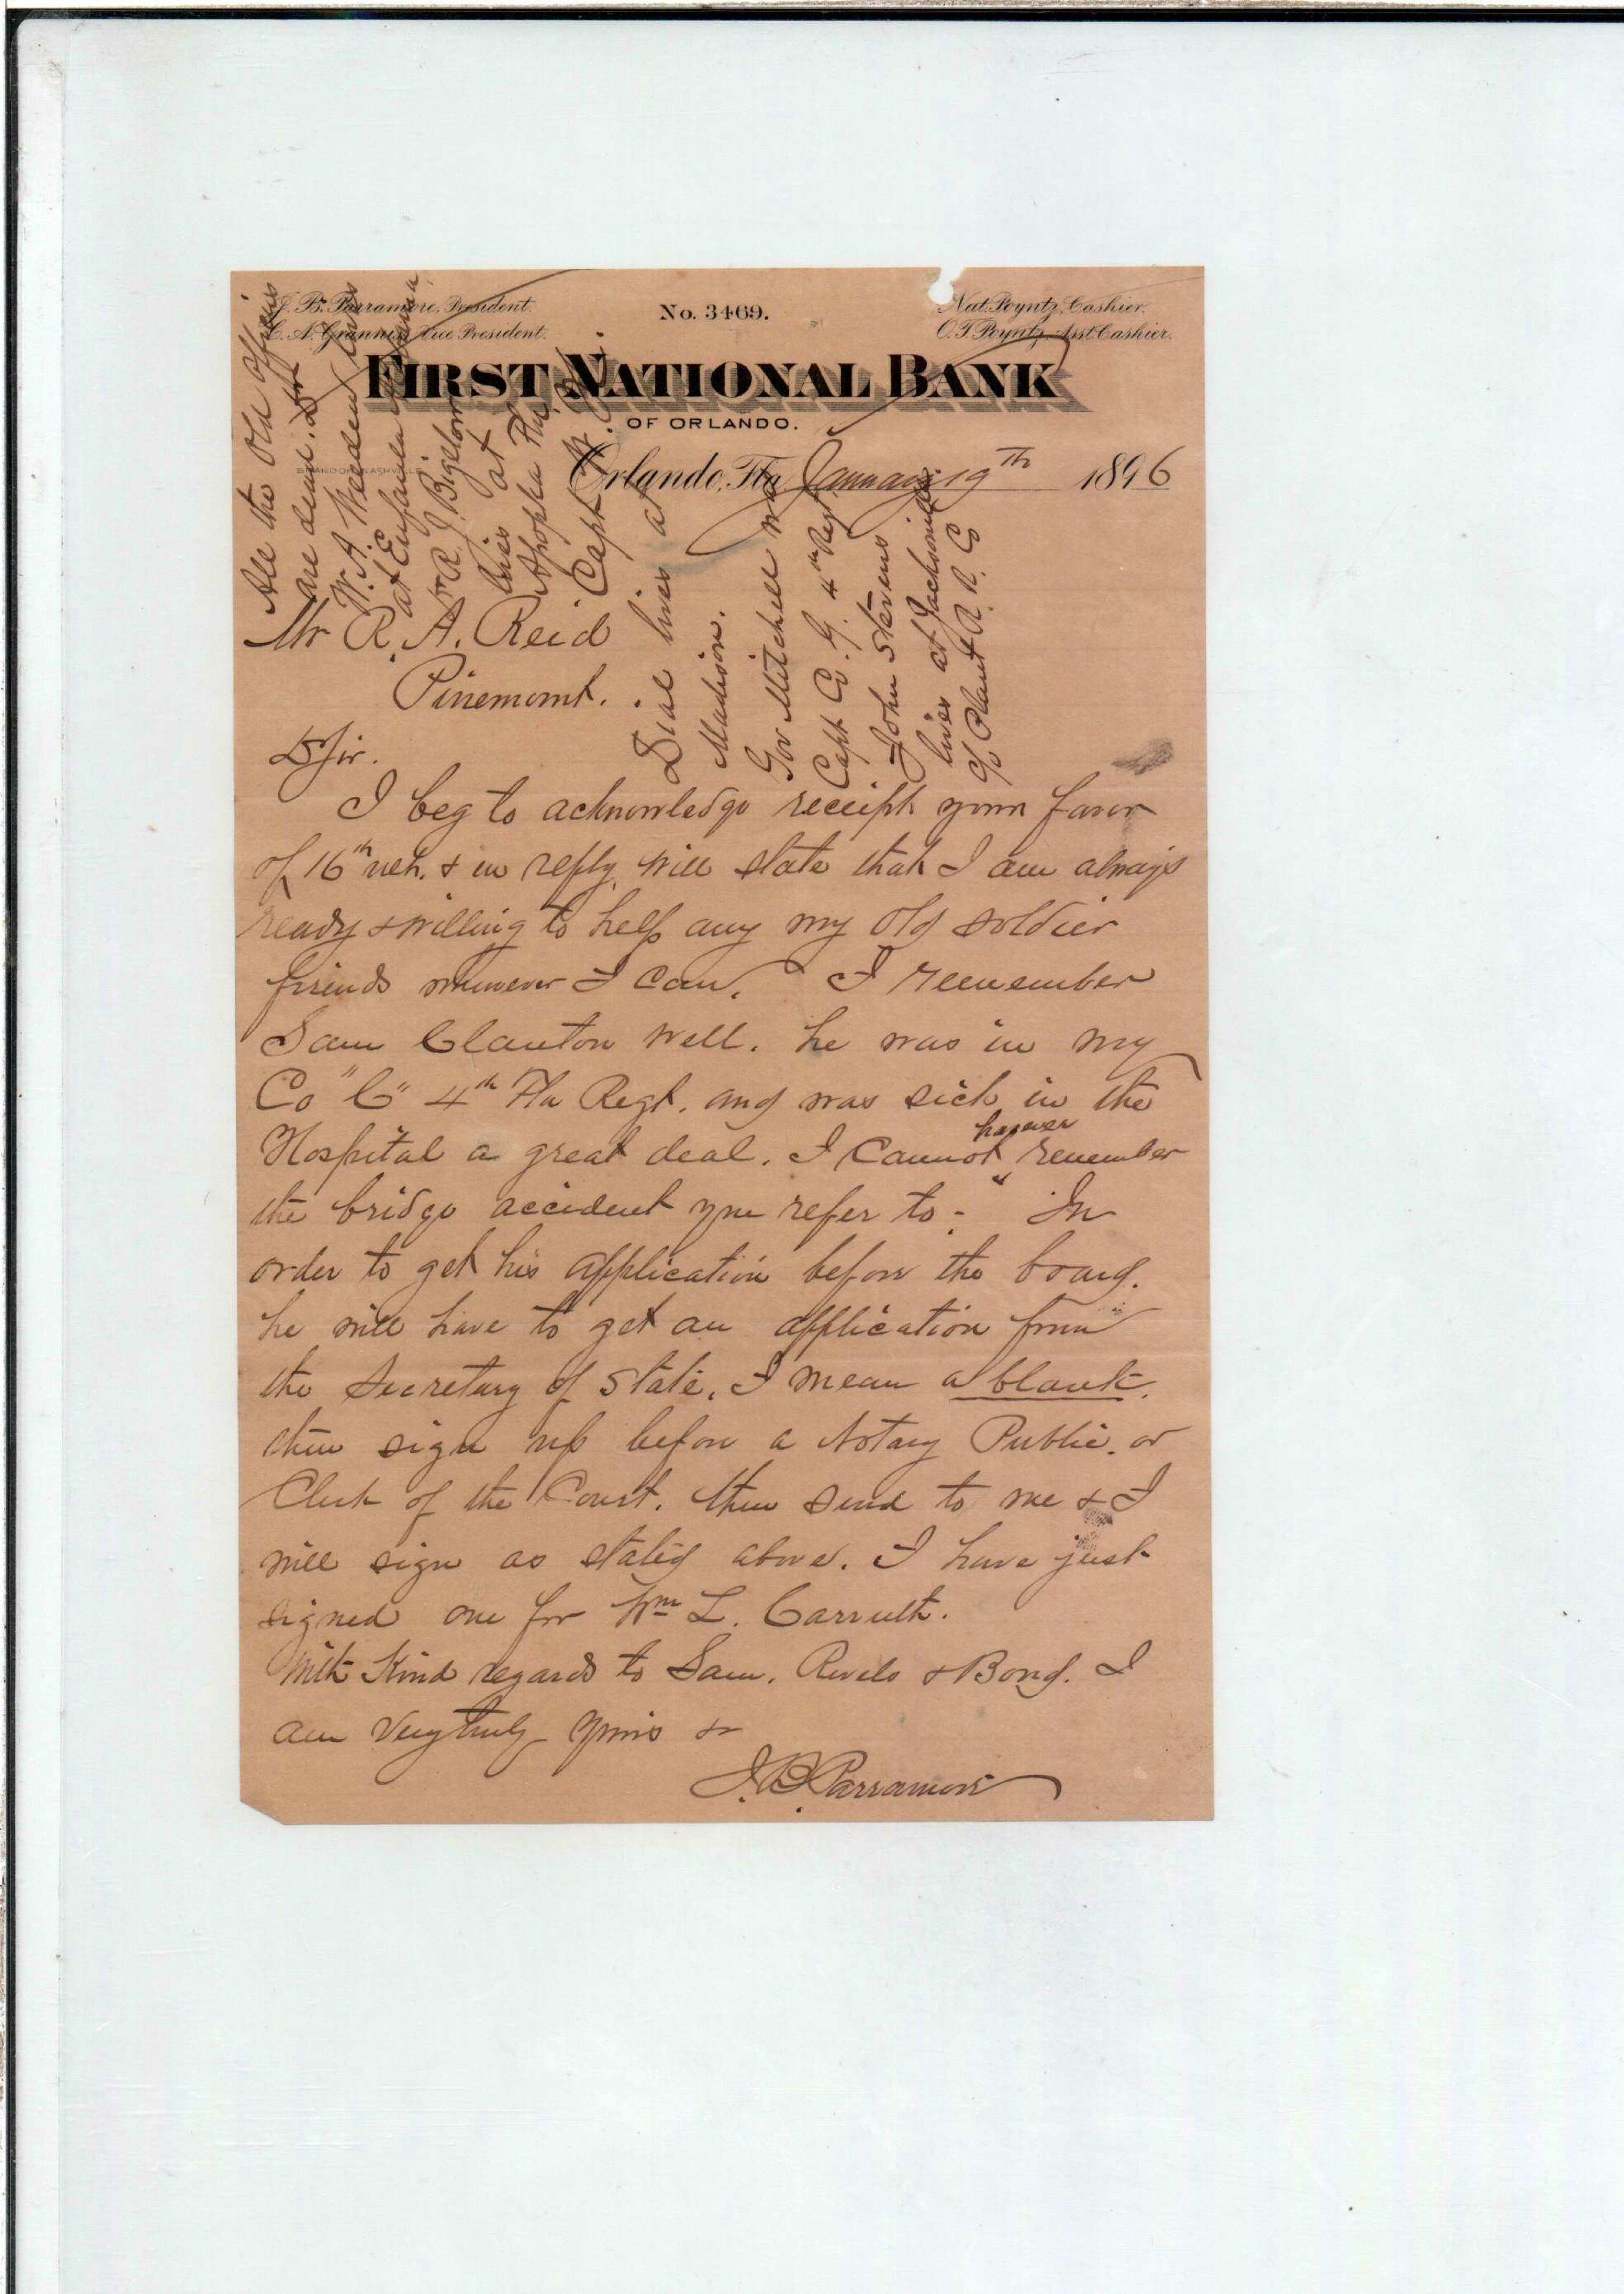 J. B. Parramore, President.
C. A. Grannis, Vice President.
No. 3469.
Nat. Poyntz, Cashier.
O. T. Poyntz, Asst. Cashier.
FIRST NATIONAL BANK
OF ORLANDO.
BRANDON NASHVILLE
Orlando, Fla January 19th 1896
Mr R. A. Reid
Pinemount.
D Sir.
I beg to acknowledge receipt your favor
of 16th ult. & in reply will state that I am always
ready & willing to help any my old soldier
friends whenever I can. I remember
Sam Clanton well. he was in my
Co "C" 4th Fla Regt. and was sick in the
Hospital a great deal. I cannot however remember
the bridge accident you refer to - In
order to get his application before the board.
he will have to get an application from
the Secretary of State. I mean a blank.
then sign up before a Notary Public. or
Clerk of the Court. then send to me & I
will sign as stated above. I have just
signed one for Wm L.
With Kind regards to Sam. Revels & Bond. I
am Very truly yours &
J. B. Parramore
All the old officers
are dead. Dr
W. A. Weedon lives
at Eufaula
Dr R. J. Bigelow
lives at
Apopka Fla
Capt W.
Dial lives at
Madison.
Gov Mitchell was
Capt Co. G. 4th Regt
John Stevens
lives at Jacksonville
c/o Plant R. R. Co